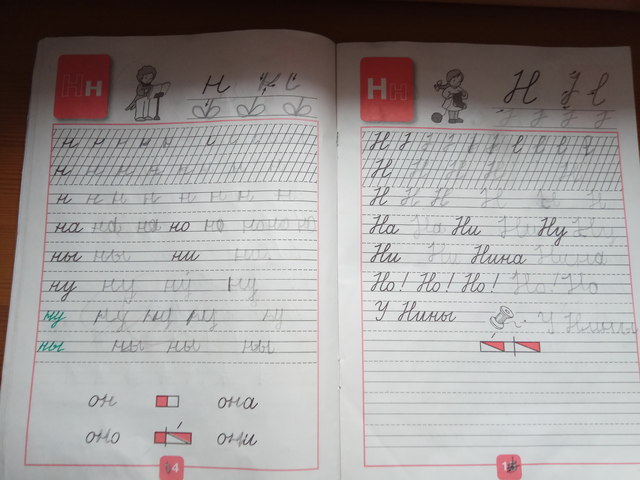 Нн
н
н н н н н
н н н н н н н
н н н н н н н н
на на на но но но но но
ны ны ни
ну ну ну ну
ну ну ну ну ну
ны ны ны ны
он она
оно они
4
Нн
Н
Н
Н Н Н Н
Н Н Н Н Н Н
На На Ни Ни Ну Ну
Ни Ни Нина Нина
Но! Но! Но! Но! Но
У Нины У Нины